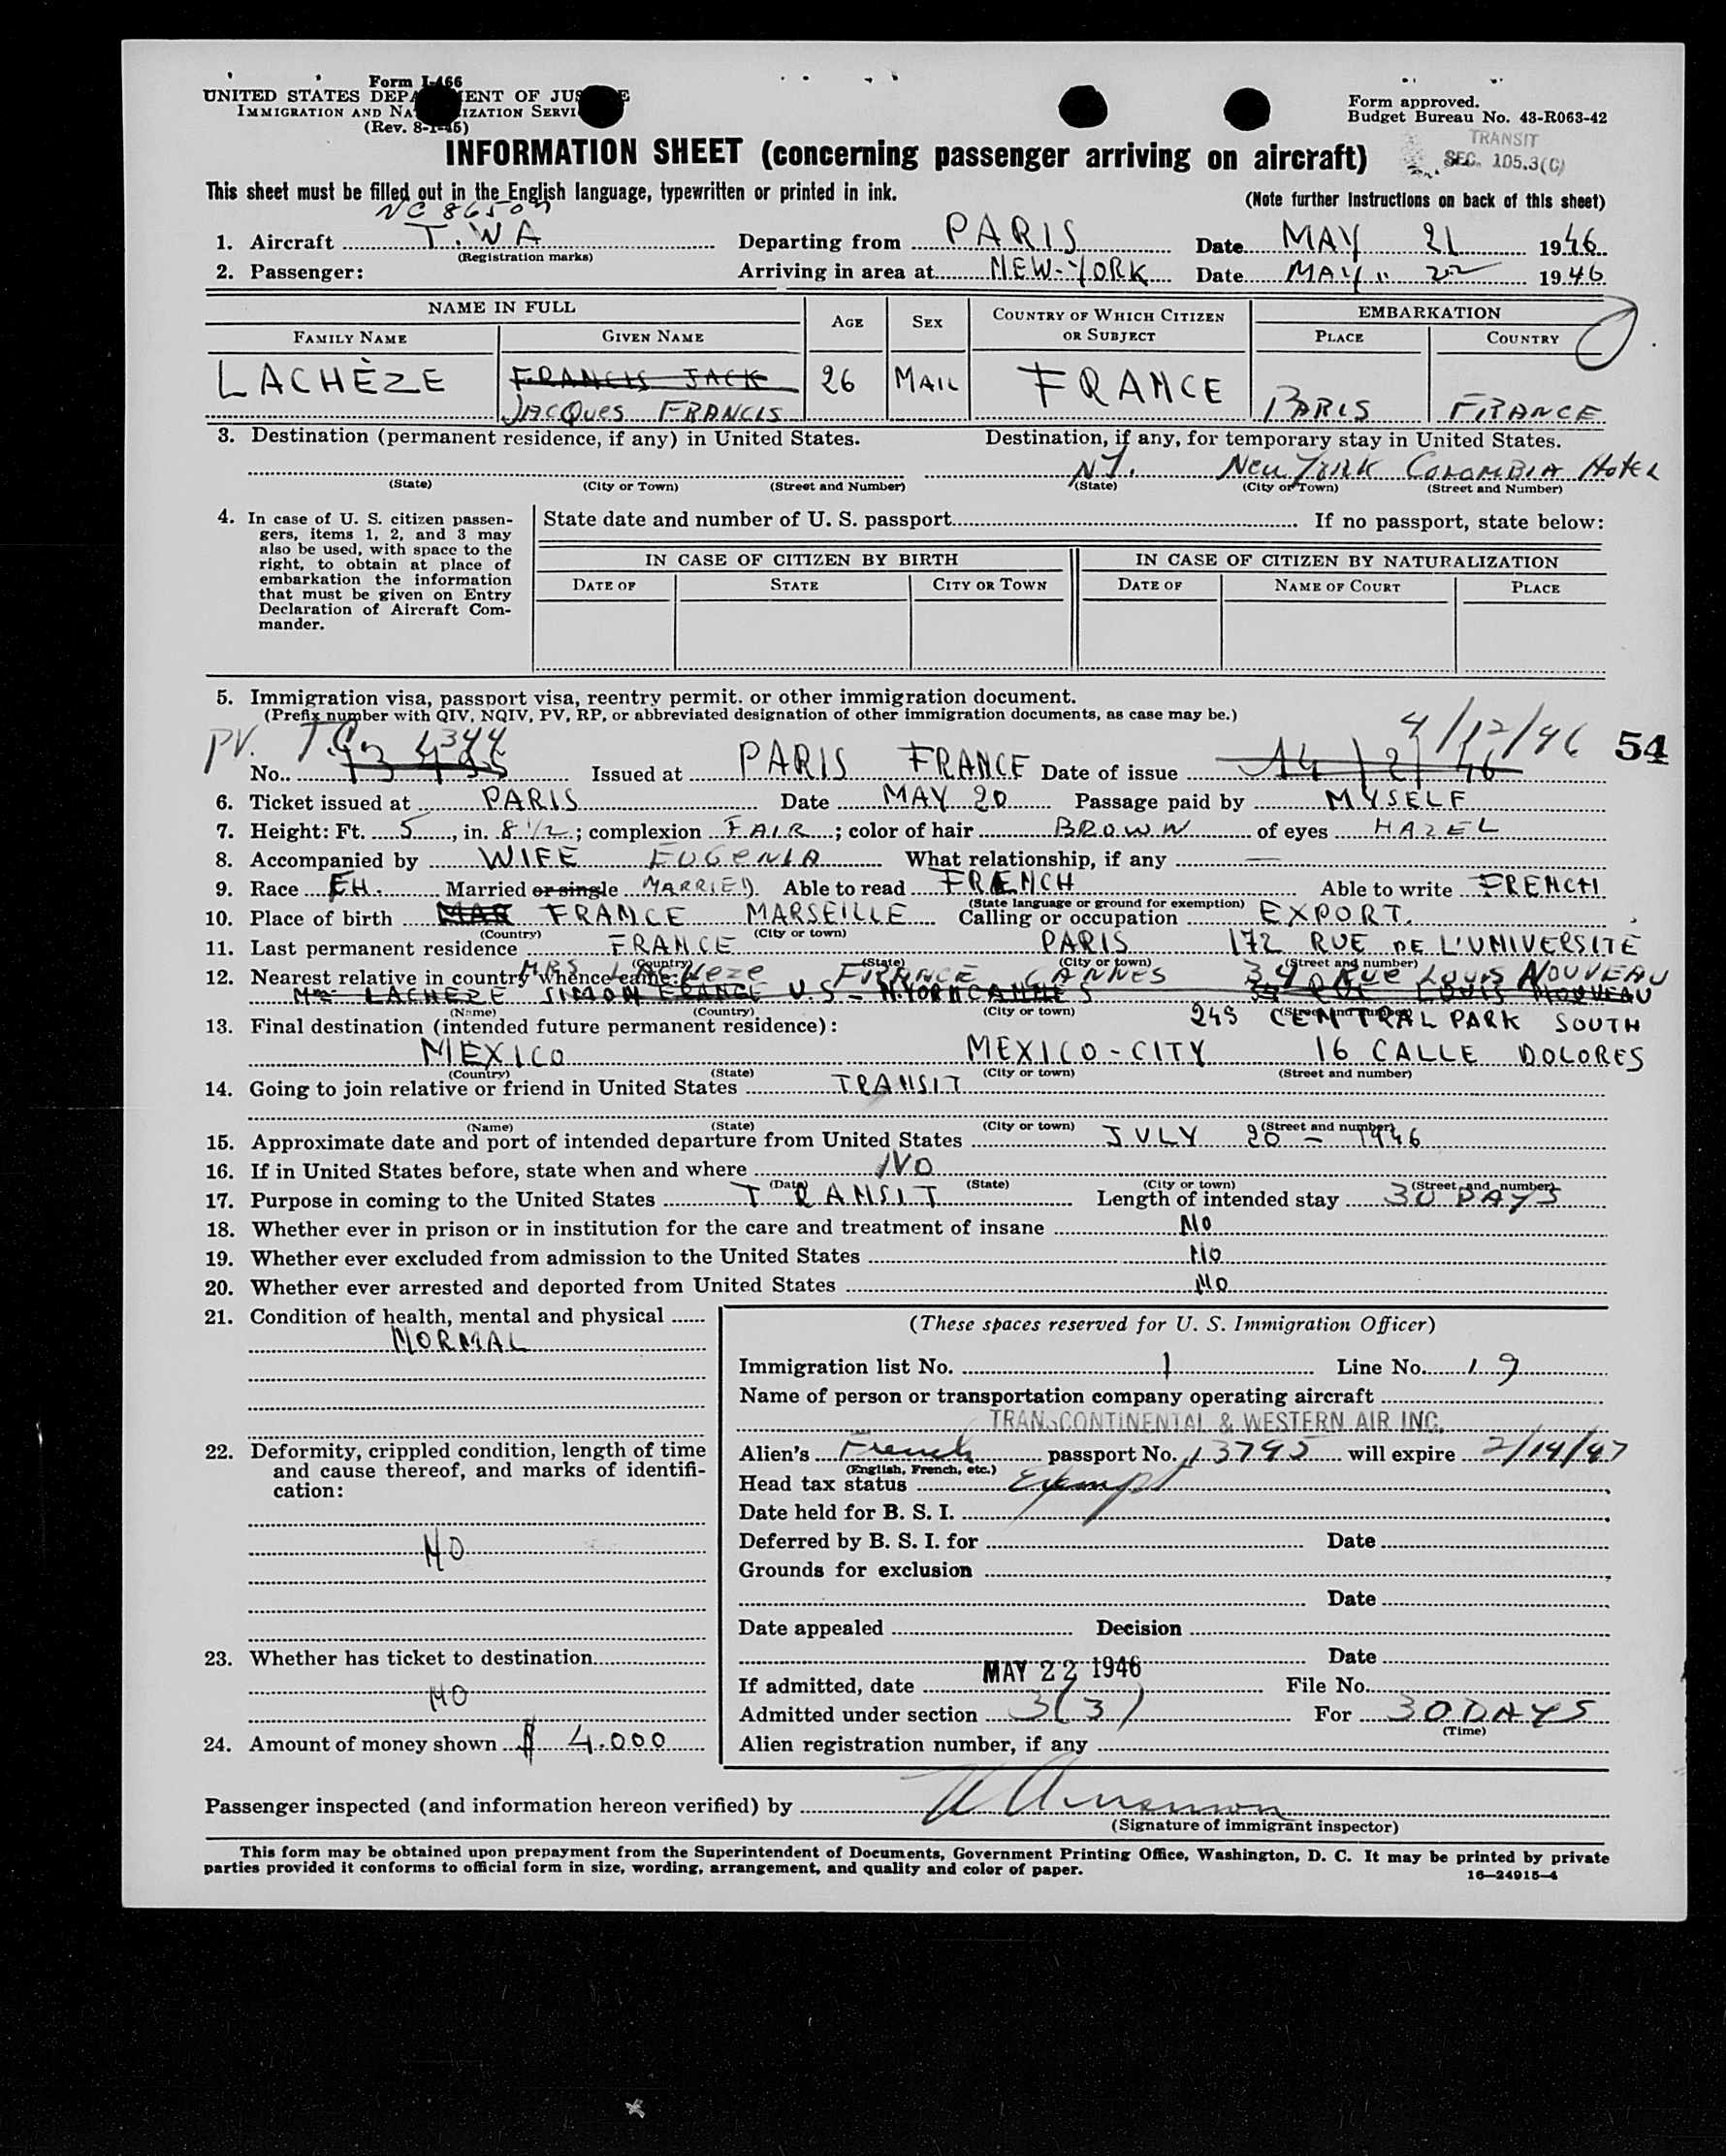 Form I-466
UNITED STATES DEPARTMENT OF JUSTICE
IMMIGRATION AND NATURALIZATION SERVICE
(Rev. 8-1-45)
Form approved.
Budget Bureau No. 43-R063-42
TRANSIT
SEC. 105.3(C)
INFORMATION SHEET (concerning passenger arriving on aircraft)
This sheet must be filled out in the English language, typewritten or printed in ink.
(Note further instructions on back of this sheet)
NC 86507
1. Aircraft T.W A Departing from PARIS Date MAY 21 1946
(Registration marks)
2. Passenger: Arriving in area at NEW-YORK Date MAY 22 1946
NAME IN FULL AGE SEX COUNTRY OF WHICH CITIZEN OR SUBJECT EMBARKATION
FAMILY NAME GIVEN NAME PLACE COUNTRY
LACHÈZE FRANCIS JACK 26 MAIL FRANCE
JACQues FRANCIS PARIS FRANCE
3. Destination (permanent residence, if any) in United States. Destination, if any, for temporary stay in United States.
N.Y. New York COLOMBIA Hotel
(State) (City or Town) (Street and Number) (State) (City or Town) (Street and Number)
4. In case of U. S. citizen passengers, items 1, 2, and 3 may also be used, with space to the right, to obtain at place of embarkation the information that must be given on Entry Declaration of Aircraft Commander.
State date and number of U. S. passport If no passport, state below:
IN CASE OF CITIZEN BY BIRTH IN CASE OF CITIZEN BY NATURALIZATION
DATE OF STATE CITY OR TOWN DATE OF NAME OF COURT PLACE
5. Immigration visa, passport visa, reentry permit. or other immigration document.
(Prefix number with QIV, NQIV, PV, RP, or abbreviated designation of other immigration documents, as case may be.)
PV. 4344 4/12/46 54
No. Issued at PARIS FRANCE Date of issue 14 / 2 / 46
6. Ticket issued at PARIS Date MAY 20 Passage paid by MYSELF
7. Height: Ft. 5, in. 8 1/2; complexion FAIR; color of hair BROWN of eyes HAZEL
8. Accompanied by WIFE EUGENIA What relationship, if any —
9. Race FH. Married or single MARRIED. Able to read FRENCH Able to write FRENCH
(State language or ground for exemption)
10. Place of birth MAR FRANCE MARSEILLE Calling or occupation EXPORT.
(Country) (City or town)
11. Last permanent residence FRANCE PARIS 172 RUE DE L'UNIVERSITE
(Country) (State) (City or town) (Street and number)
12. Nearest relative in country whence came: MRS LACHeze FRANCE CANNES 34 Rue Louis NOUVEAU
Mme LACHEZE SIMON FRANCE U.S - N.YORK CANNES 34 RUE LOUIS NOUVEAU
(Name) (Country) (City or town) (Street and number)
245 CENTRAL PARK SOUTH
13. Final destination (intended future permanent residence):
MEXICO MEXICO-CITY 16 CALLE DOLORES
(Country) (State) (City or town) (Street and number)
14. Going to join relative or friend in United States TRANSIT
(Name) (State) (City or town) (Street and number)
15. Approximate date and port of intended departure from United States JULY 20 - 1946
16. If in United States before, state when and where NO
(Date) (State) (City or town) (Street and number)
17. Purpose in coming to the United States TRANSIT Length of intended stay 30 DAYS
18. Whether ever in prison or in institution for the care and treatment of insane NO
19. Whether ever excluded from admission to the United States NO
20. Whether ever arrested and deported from United States NO
21. Condition of health, mental and physical
NORMAL
22. Deformity, crippled condition, length of time and cause thereof, and marks of identification:
NO
23. Whether has ticket to destination
NO
24. Amount of money shown $ 4.000
(These spaces reserved for U. S. Immigration Officer)
Immigration list No. 1 Line No. 19
Name of person or transportation company operating aircraft
TRANSCONTINENTAL & WESTERN AIR INC.
Alien's French passport No. 13795 will expire 2/14/47
(English, French, etc.)
Head tax status Exempt
Date held for B. S. I.
Deferred by B. S. I. for Date
Grounds for exclusion
Date
Date appealed Decision
Date
If admitted, date MAY 22 1946 File No.
Admitted under section 3(3) For 30 DAYS
(Time)
Alien registration number, if any
Passenger inspected (and information hereon verified) by
(Signature of immigrant inspector)
This form may be obtained upon prepayment from the Superintendent of Documents, Government Printing Office, Washington, D. C. It may be printed by private
parties provided it conforms to official form in size, wording, arrangement, and quality and color of paper.
16—24915-4